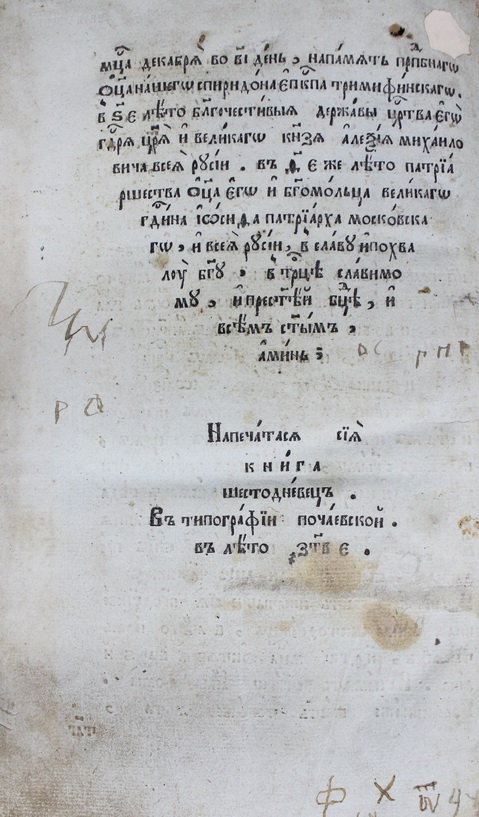 мц҃а декабрѧ̀ во в҃і де́нь , напа́мѧть прпⷣбнагѡ
ѻц҃а на́шегѡ спѷрїдо́на є҆пкⷭ҇па трїмїфі́нскагѡ .
в ѕ҃ є лѣ́то бл҃гочести́выѧ держа́вы црⷭ҇тва є҆гѡ̀
гдⷭ҇рѧ цр҃ѧ̀ и҆ вели́кагѡ кнѧ́зѧ а҆леѯі́ѧ миха́ило
вича всеѧ̀ рꙋсі́и . въ д҃ є же лѣ́то патрїа́
ршества ѻ҆ц҃а є҆гѡ̀ и҆ бг҃омо́льца вели́кагѡ
гдⷭ҇и́на і҆ѡ́сифа патрїа́рха моско́вска
гѡ , и҆ всеѧ̀ рꙋсі́и , в сла́вꙋ и҆ похва
лꙋ̀ бг҃ꙋ , в трⷪ҇цѣ сла́вимо
мꙋ , и҆ престⷭ҇ѣ́й бцⷣѣ , и҆
всѣ́мъ ст҃ы́мъ ,
а҆ми́нь :
Напеча́тасѧ сїѧ̀
кни́га
шестодне́вецъ .
Въ типогра́фїи поча́евской .
въ лѣ́то